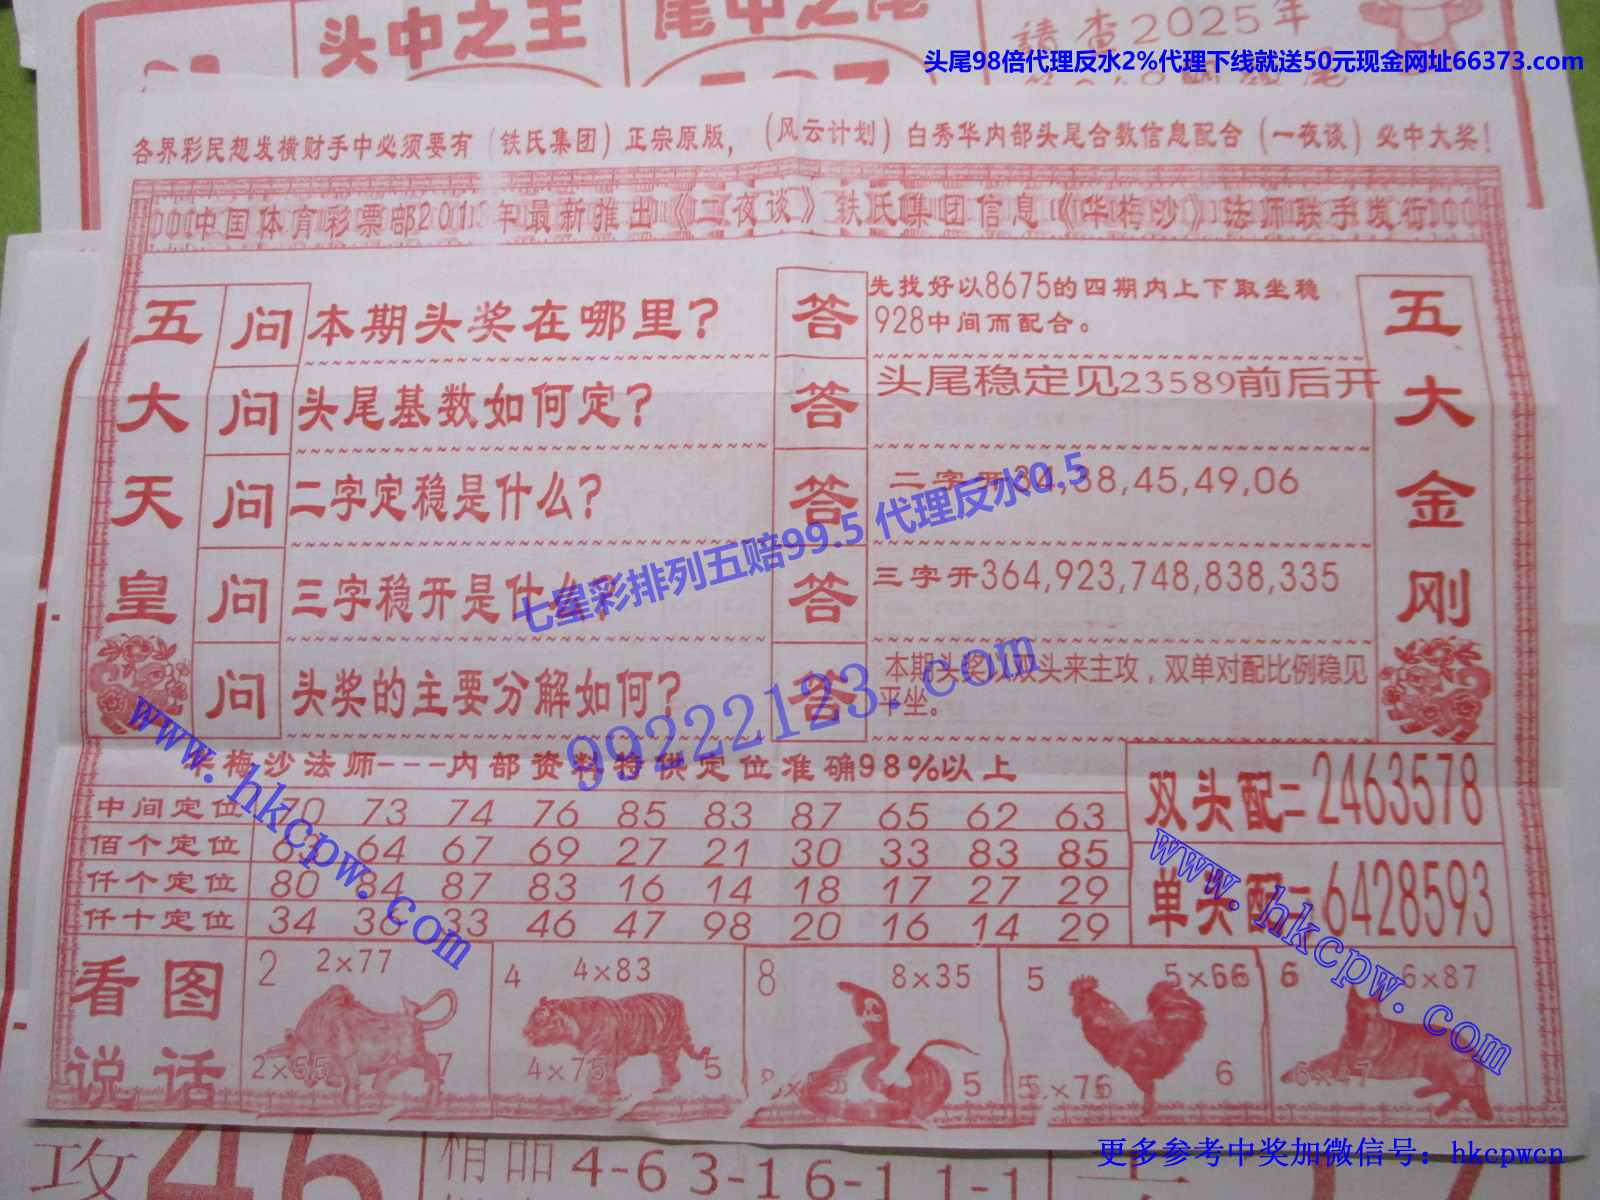 头中之王
尾中之尾
請查2025年
头尾98倍代理反水2%代理下线就送50元现金网址66373.com
各界彩民想发横财手中必须要有（铁氏集团）正宗原版，（风云计划）白秀华内部头尾合数信息配合（一夜谈）必中大奖！
中国体育彩票部201 年最新推出《二夜谈》铁氏集团信息《华梅沙》法师联手发行
五大天皇
五大金刚
问 本期头奖在哪里？
答 先找好以8675的四期内上下取坐稳
928中间而配合。
问 头尾基数如何定？
答 头尾稳定见23589前后开
问 二字定稳是什么？
答 二字开34,38,45,49,06
问 三字稳开是什么？
答 三字开364,923,748,838,335
问 头奖的主要分解如何？
答 本期头奖以双头来主攻，双单对配比例稳见
平坐。
七星彩排列五赔99.5 代理反水0.5
99222123.com
www.hkcpw.com
www.hkcpw.com
华梅沙法师---内部资料特供定位准确98%以上
中间定位 70 73 74 76 85 83 87 65 62 63
佰个定位 63 64 67 69 27 21 30 33 83 85
仟个定位 80 84 87 83 16 14 18 17 27 29
仟十定位 34 36 33 46 47 98 20 16 14 29
双头配二 2463578
单头配二 6428593
看图
说话
2 2×77
2×55 7
4 4×83
4×75 5
8 8×35
5
5 5×66
5×76 6
6 6×87
6×47
攻 46
精品 4-6 3-1 6-1 1-1
更多参考中奖加微信号：hkcpwcn